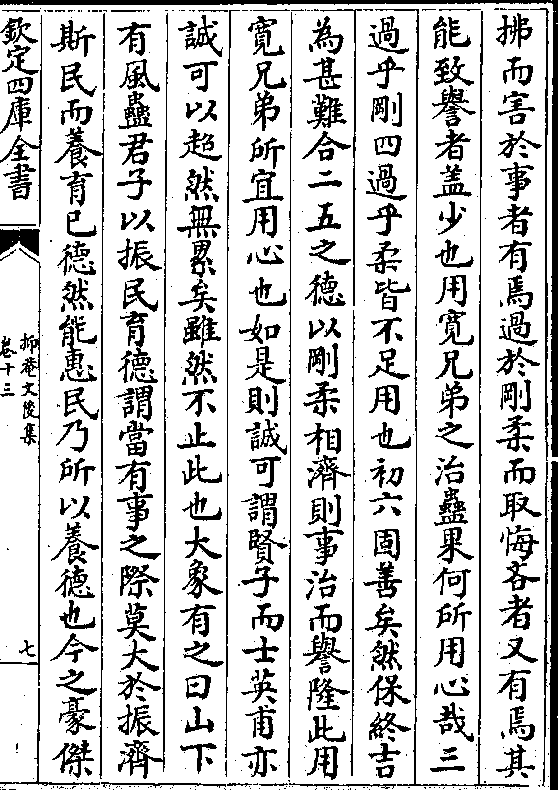 拂而害於事者有焉過於剛柔而取悔吝者又有焉其
能致譽者盖少也用寛兄弟之治蠱果何所用心哉三
過乎剛四過乎柔皆不足用也初六固善矣然保終吉
為甚難合二五之德以剛柔相濟則事治而譽隆此用
寛兄弟所宜用心也如是則誠可謂賢子而士英甫亦
誠可以超然無累矣雖然不止此也大象有之曰山下
有風蠱君子以振民育德謂當有事之際莫大於振濟
斯民而養育已德然能惠民乃所以養德也今之豪傑
欽定四庫全書
抑菴文後集
卷十三
七